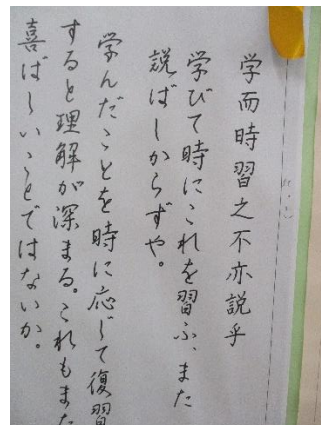 学而時習之不亦説乎
学びて時にこれを習ふ、また
説ばしからずや。
学んだことを時に応じて復習
すると理解が深まる。これもまた
喜ばしいことではないか。